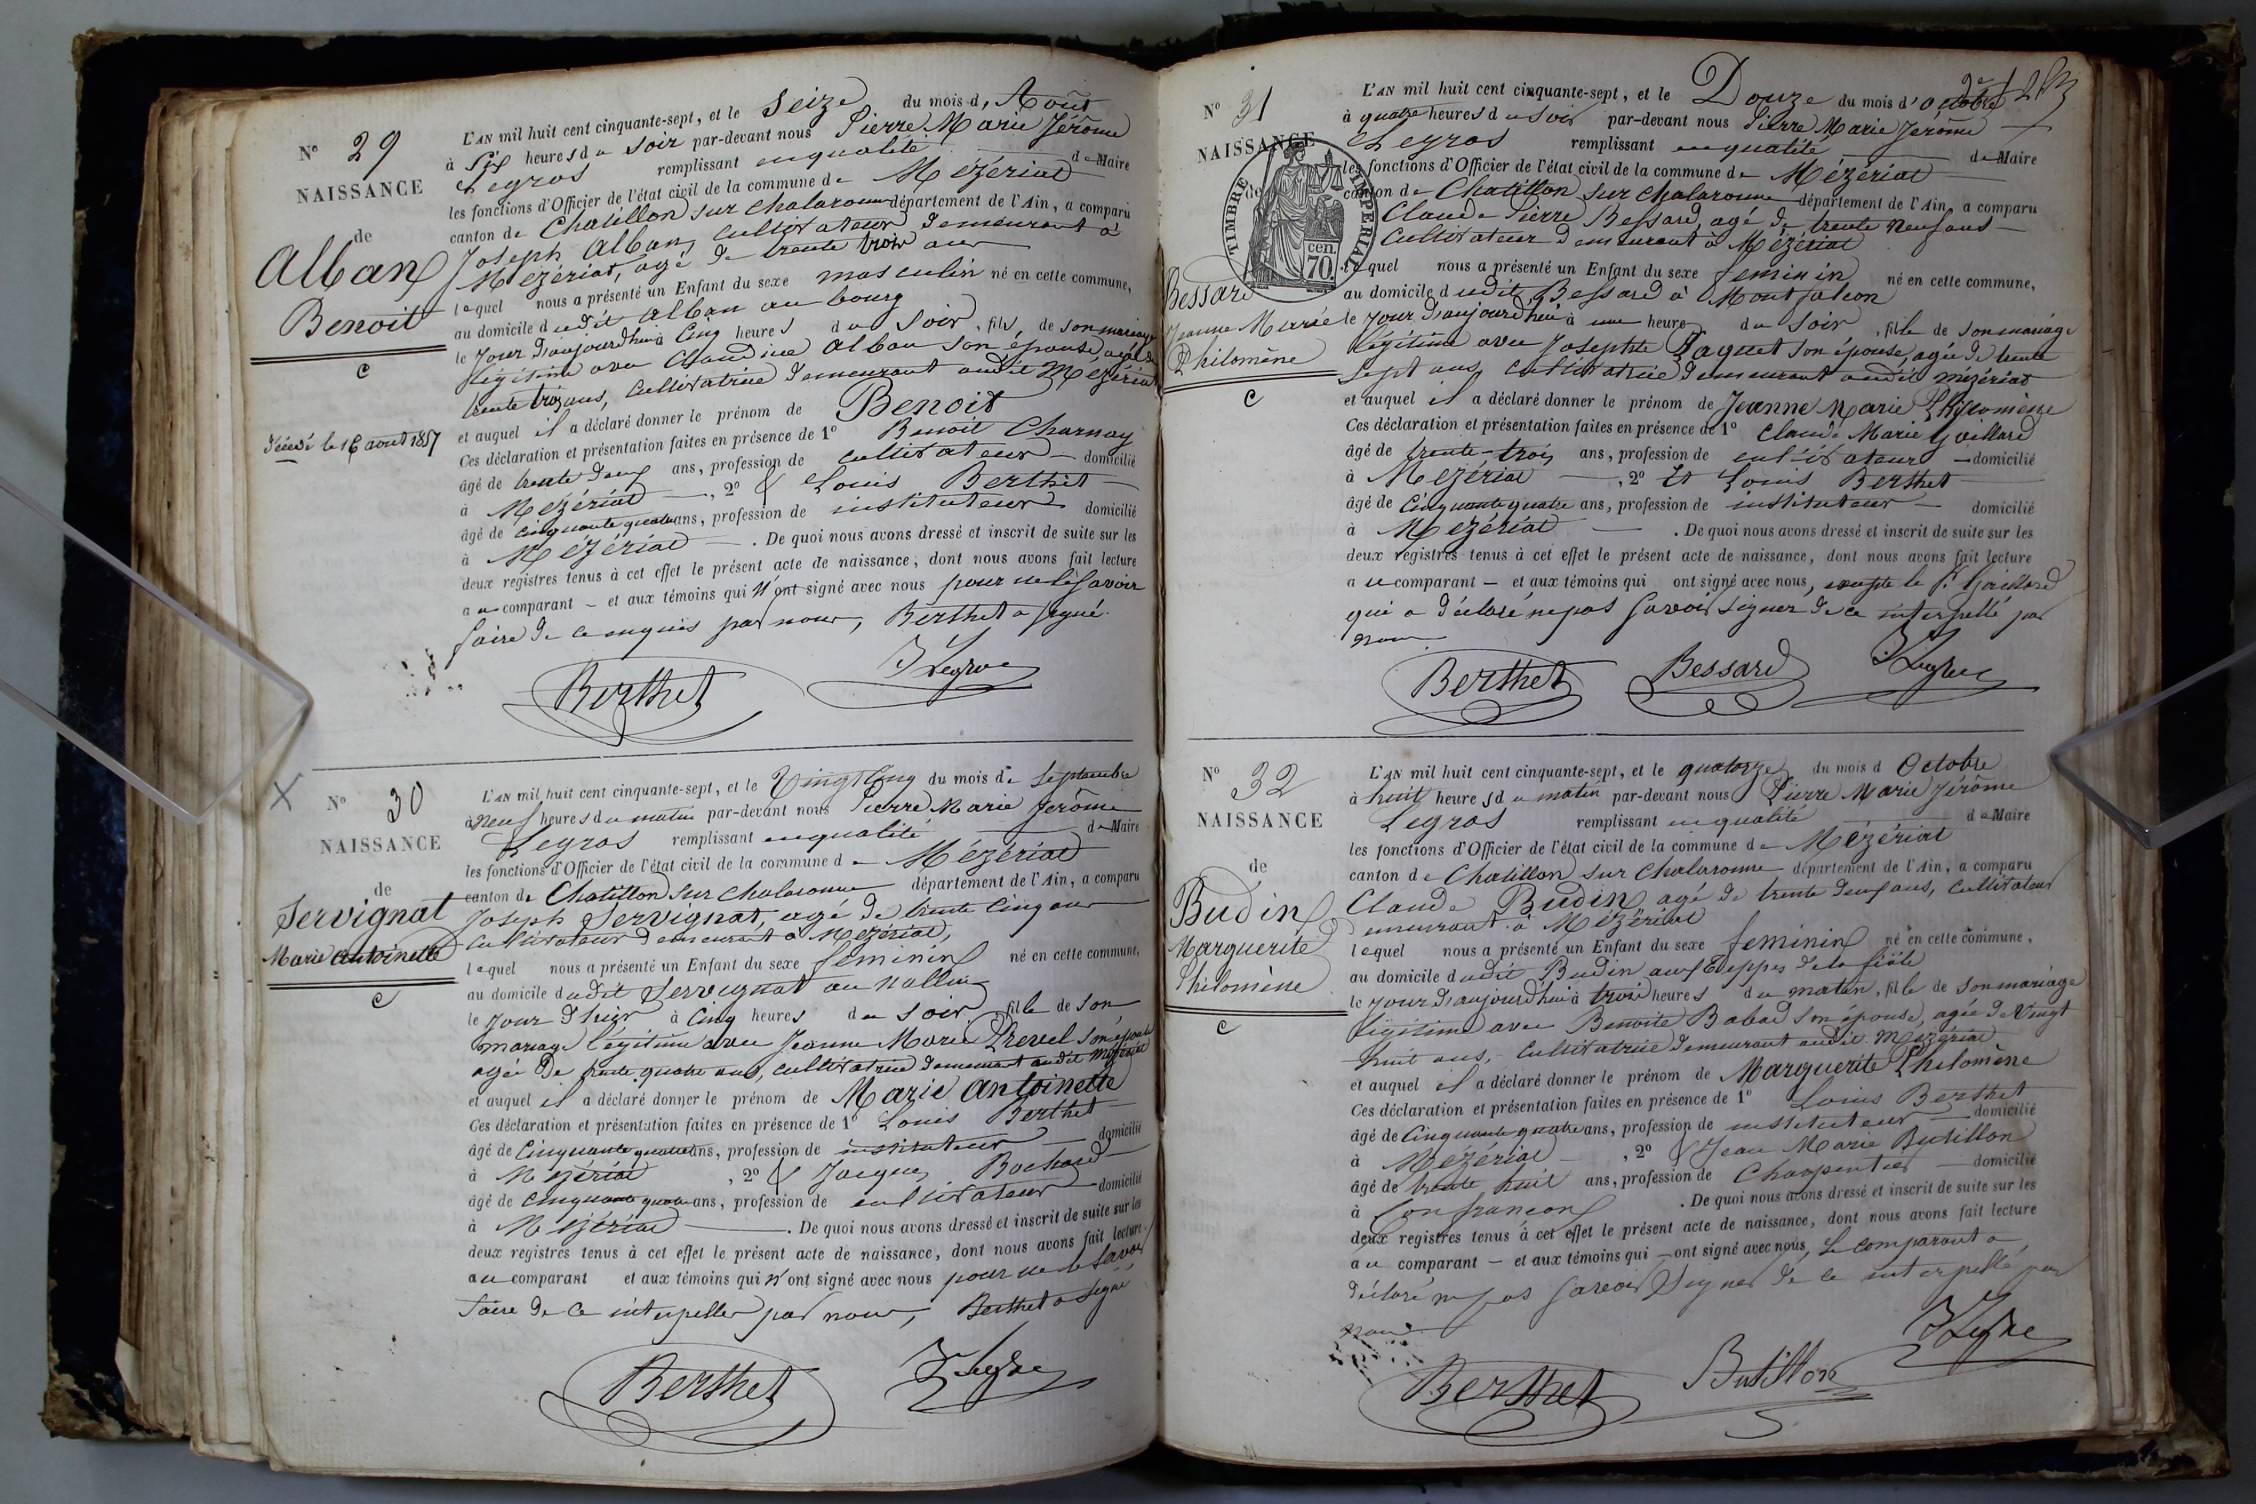 N° 29
NAISSANCE
de
Alban
Benoit
C
décédé le 16 aout 1857
L'AN mil huit cent cinquante-sept, et le Seize du mois d'Août
à Six heures du soir par-devant nous Pierre Marie Jérôme
Legros remplissant en qualité de Maire
les fonctions d'Officier de l'état civil de la commune de Mézériat
canton de Chatillon sur Chalaronne département de l'Ain, a comparu
Joseph Alban, cultivateur demeurant à
Mézériat, agé de trente trois ans
lequel nous a présenté un Enfant du sexe masculin né en cette commune,
au domicile dudit Alban au bourg
le jour d'aujourdhui à Cinq heures du soir, fils de son mariage
légitime avec Claudine Alban son épouse, agée de
trente trois ans, cultivatrice demeurant audit Mézériat
et auquel il a déclaré donner le prénom de Benoit
Ces déclaration et présentation faites en présence de 1° Benoit Charnay
âgé de trente deux ans, profession de cultivateur domicilié
à Mézériat, 2° & Louis Berthet
âgé de cinquante quatre ans, profession de instituteur domicilié
à Mézériat. De quoi nous avons dressé et inscrit de suite sur les
deux registres tenus à cet effet le présent acte de naissance, dont nous avons fait lecture
au comparant et aux témoins qui n'ont signé avec nous pour ne le savoir
faire de ce enquis par nous, Berthet a signé.
Berthet Legros
X
N° 30
NAISSANCE
de
Servignat
Marie Antoinette
C
L'AN mil huit cent cinquante-sept, et le Vingt Cinq du mois de Septembre
à neuf heures du matin par-devant nous Pierre Marie Jerôme
Legros remplissant en qualité de Maire
les fonctions d'Officier de l'état civil de la commune de Mézériat
canton de Chatillon sur Chalaronne département de l'Ain, a comparu
Joseph Servignat, agé de trente Cinq ans
Cultivateur demeurant à Mézériat,
lequel nous a présenté un Enfant du sexe féminin né en cette commune,
au domicile dudit Servignat au
le jour d'hier à Cinq heures du soir, fille de son
mariage légitime avec Jeanne Marie Prevel son épouse
agée de trente quatre ans, cultivatrice demeurant audit Mézériat
et auquel il a déclaré donner le prénom de Marie Antoinette
Ces déclaration et présentation faites en présence de 1° Louis Berthet
âgé de Cinquante quatre ans, profession de instituteur domicilié
à Mézériat, 2° & Jacques Bochard
âgé de cinquante quatre ans, profession de cultivateur domicilié
à Mézériat. De quoi nous avons dressé et inscrit de suite sur les
deux registres tenus à cet effet le présent acte de naissance, dont nous avons fait lecture
au comparant et aux témoins qui n'ont signé avec nous pour ne le savoir
faire de ce interpeller par nous, Berthet a signé
Berthet Legros
N° 31
NAISSANCE
de
TIMBRE IMPERIAL
70 cen.
Bessard
Jeanne Marie
Philomène
C
L'AN mil huit cent cinquante-sept, et le Douze du mois d'Octobre
à quatre heures du soir par-devant nous Pierre Marie Jérôme
Legros remplissant en qualité de Maire
les fonctions d'Officier de l'état civil de la commune de Mézériat
canton de Chatillon sur Chalaronne département de l'Ain, a comparu
Claude Pierre Bessard, agé de trente neuf ans
Cultivateur demeurant à Mézériat
lequel nous a présenté un Enfant du sexe feminin né en cette commune,
au domicile dudit Bessard à Montfalcon
le jour d'aujourdhui à une heure du soir, fille de son mariage
légitime avec Josephte Paquet son épouse, agée de trente
sept ans, cultivatrice demeurant audit mézériat
et auquel il a déclaré donner le prénom de Jeanne Marie Philomène
Ces déclaration et présentation faites en présence de 1° Claude Marie Gaillard
âgé de trente-trois ans, profession de cultivateur domicilié
à Mézériat, 2° et Louis Berthet
âgé de Cinquante quatre ans, profession de instituteur domicilié
à Mézériat. De quoi nous avons dressé et inscrit de suite sur les
deux registres tenus à cet effet le présent acte de naissance, dont nous avons fait lecture
au comparant et aux témoins qui ont signé avec nous, excepté le Sr Gaillard
qui a déclaré ne pas savoir signer de ce interpellé par
nous
Berthet Bessard Legros
N° 32
NAISSANCE
de
Budin
Marguerite
Philomène
C
L'AN mil huit cent cinquante-sept, et le quatorze du mois d Octobre
à huit heures du matin par-devant nous Pierre Marie Jérôme
Legros remplissant en qualité de Maire
les fonctions d'Officier de l'état civil de la commune de Mézériat
canton de Chatillon sur Chalaronne département de l'Ain, a comparu
Claude Budin, agé de trente deux ans, cultivateur
demeurant à Mézériat
lequel nous a présenté un Enfant du sexe feminin né en cette commune,
au domicile dudit Budin aux Teppes de la
le jour d'aujourdhui à trois heures du matin, fille de son mariage
légitime avec Benoite Babad son épouse, agée de Vingt
huit ans, cultivatrice demeurant audit Mézériat
et auquel il a déclaré donner le prénom de Marguerite Philomène
Ces déclaration et présentation faites en présence de 1° Louis Berthet
âgé de Cinquante quatre ans, profession de instituteur domicilié
à Mézériat, 2° & Jean Marie Butillon
âgé de trente huit ans, profession de Charpentier domicilié
à Confrançon. De quoi nous avons dressé et inscrit de suite sur les
deux registres tenus à cet effet le présent acte de naissance, dont nous avons fait lecture
au comparant et aux témoins qui ont signé avec nous, le comparant a
déclaré ne pas savoir signer de ce interpellé par
nous
Berthet Butillon Legros